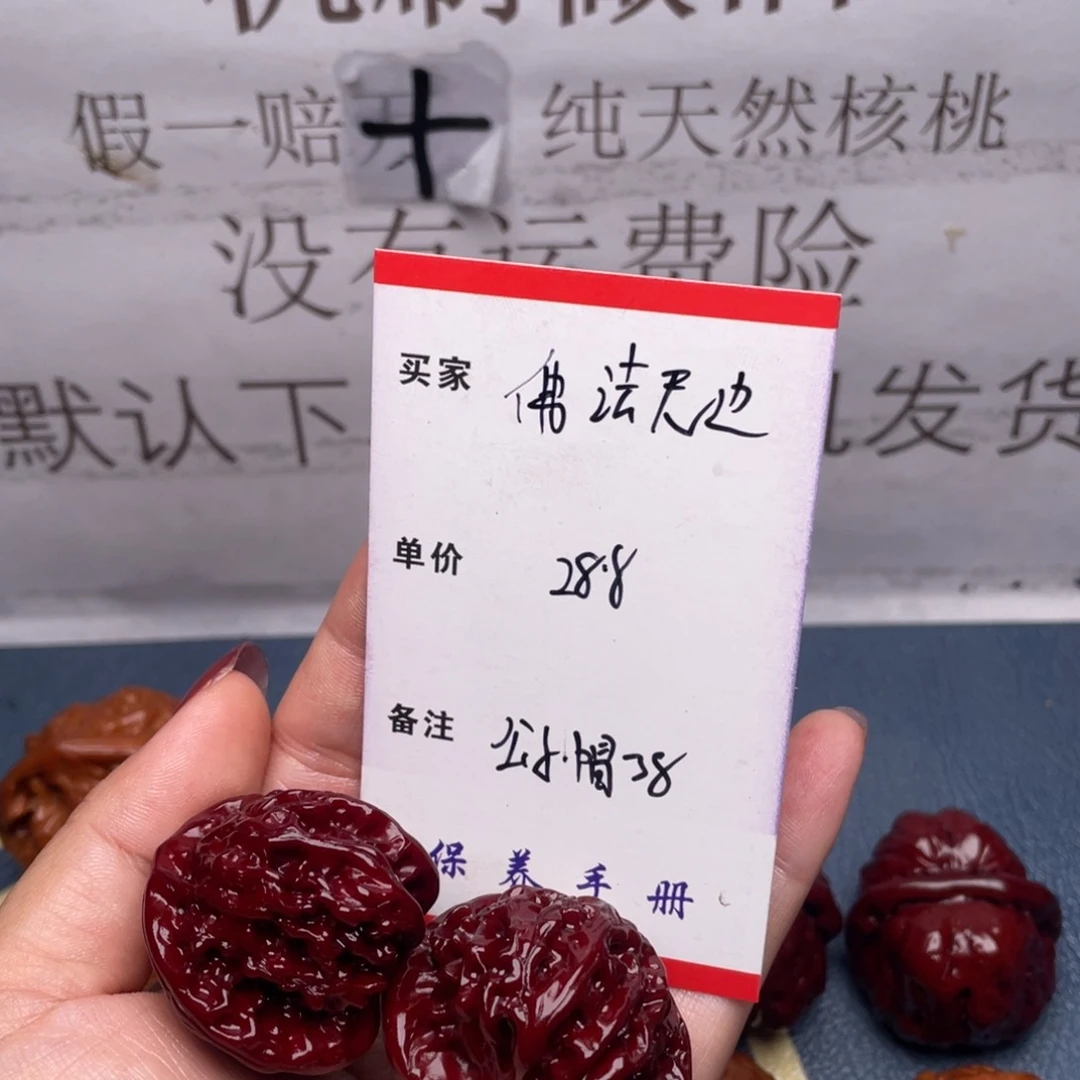 假一赔十 纯天然核桃
没有运费险
默认下 机发货
买家 佛法无边
单价 28.8
备注 公子帽 38
保养手册